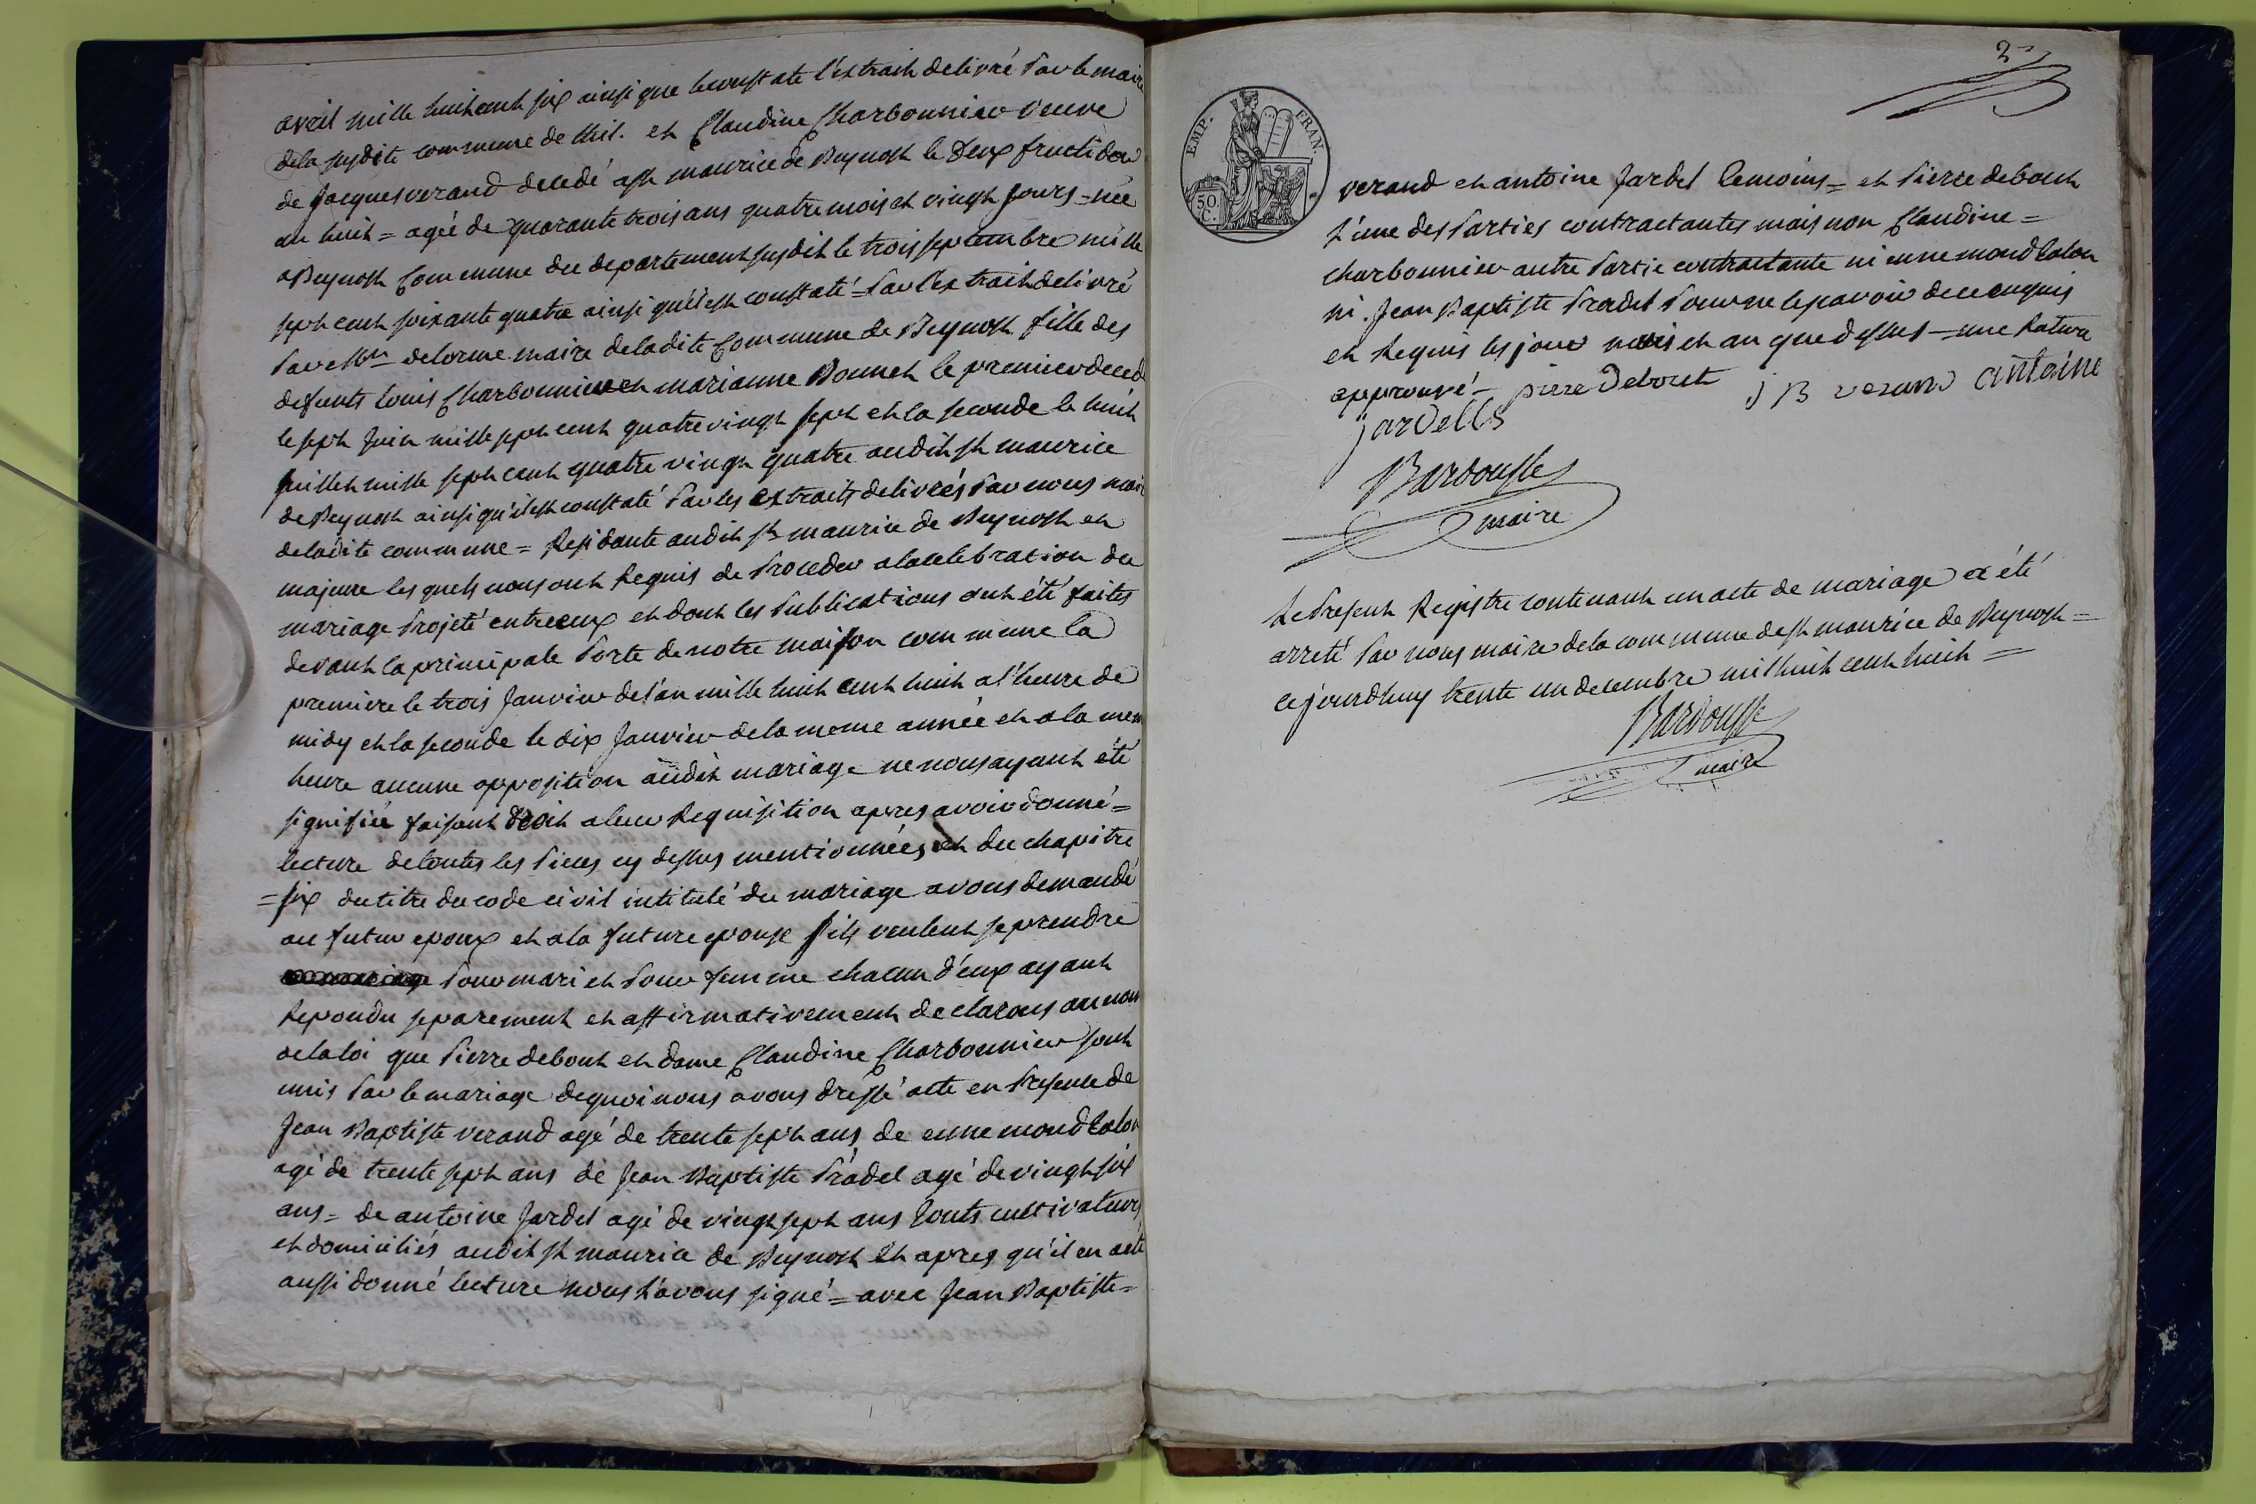 avril mille huit cent six ainsi que le constate l'extrait delivré par le maire
de la susdite commune de thil. et Claudine Charbonnier veuve
de Jacques verand decedé a st maurice de Beynost le Deux fructidor
an huit = agée de quarante trois ans quatre mois et vingt jours = née
a Beynost Commune du departement susdit le trois septembre mille
sept cent soixante quatre ainsi qu'il est constaté = par l'extrait delivré
par Mr delorme maire de ladite Commune de Beynost fille des
defunts louis Charbonnier et marianne Bonnet le premier decedé
le sept juin mille sept cent quatre vingt sept et la seconde le huit
juillet mille sept cent quatre vingt quatre audit st maurice
de Beynost ainsi qu'il est constaté par les extraits delivrés par nous maire
de ladite commune = Residante audit st maurice de Beynost et
majeure les quels nous ont Requis de proceder a la celebration du
mariage projeté entre eux et dont les publications ont été faites
devant la principale porte de notre maison commune la
premiere le trois Janvier de l'an mille huit cent huit a l'heure de
midy et la seconde le dix Janvier de la meme année et a la meme
heure aucune opposition audit mariage ne nous ayant été
signifiée faisant droit a leur Requisition apres avoir donné =
lecture de toutes les pieces cy dessus mentionnées et du chapitre
= six du titre du code civil intitulé du mariage avons demandé
au futur epoux et a la future epouse s'ils veulent se prendre
pour mari et pour femme chacun d'eux ayant
Repondu separement et affirmativement declarons au nom
de la loi que Pierre debout et dame Claudine Charbonnier sont
unis par le mariage de quoi nous avons dressé acte en presence de
Jean Baptiste verand agé de trente sept ans de ennemond Calon
agé de trente sept ans de Jean Baptiste Pradel agé de vingt six
ans = de antoine Jardel agé de vingt sept ans touts cultivateurs
et domiciliés audit st maurice de Beynost et apres qu'il en a eté
aussi donné lecture nous l'avons signé = avec Jean Baptiste =
2
EMP. FRAN.
50 C.
verand et antoine Jardel temoins = et Pierre debout
l'une des parties contractantes mais non Claudine =
charbonnier autre partie contractante ni ennemond Calon
ni. Jean Baptiste Pradel pour ne le savoir de ce enquis
et Requis les jour mois et an que dessus — une Rature
approuvé = pierre Debout j B verand antoine
jardells
Bardousse
maire
Le present Registre contenant un acte de mariage a été
arreté par nous maire de la commune de st maurice de Beynost =
ce jourdhuy trente un decembre mil huit cent huit =
Bardousse
maire